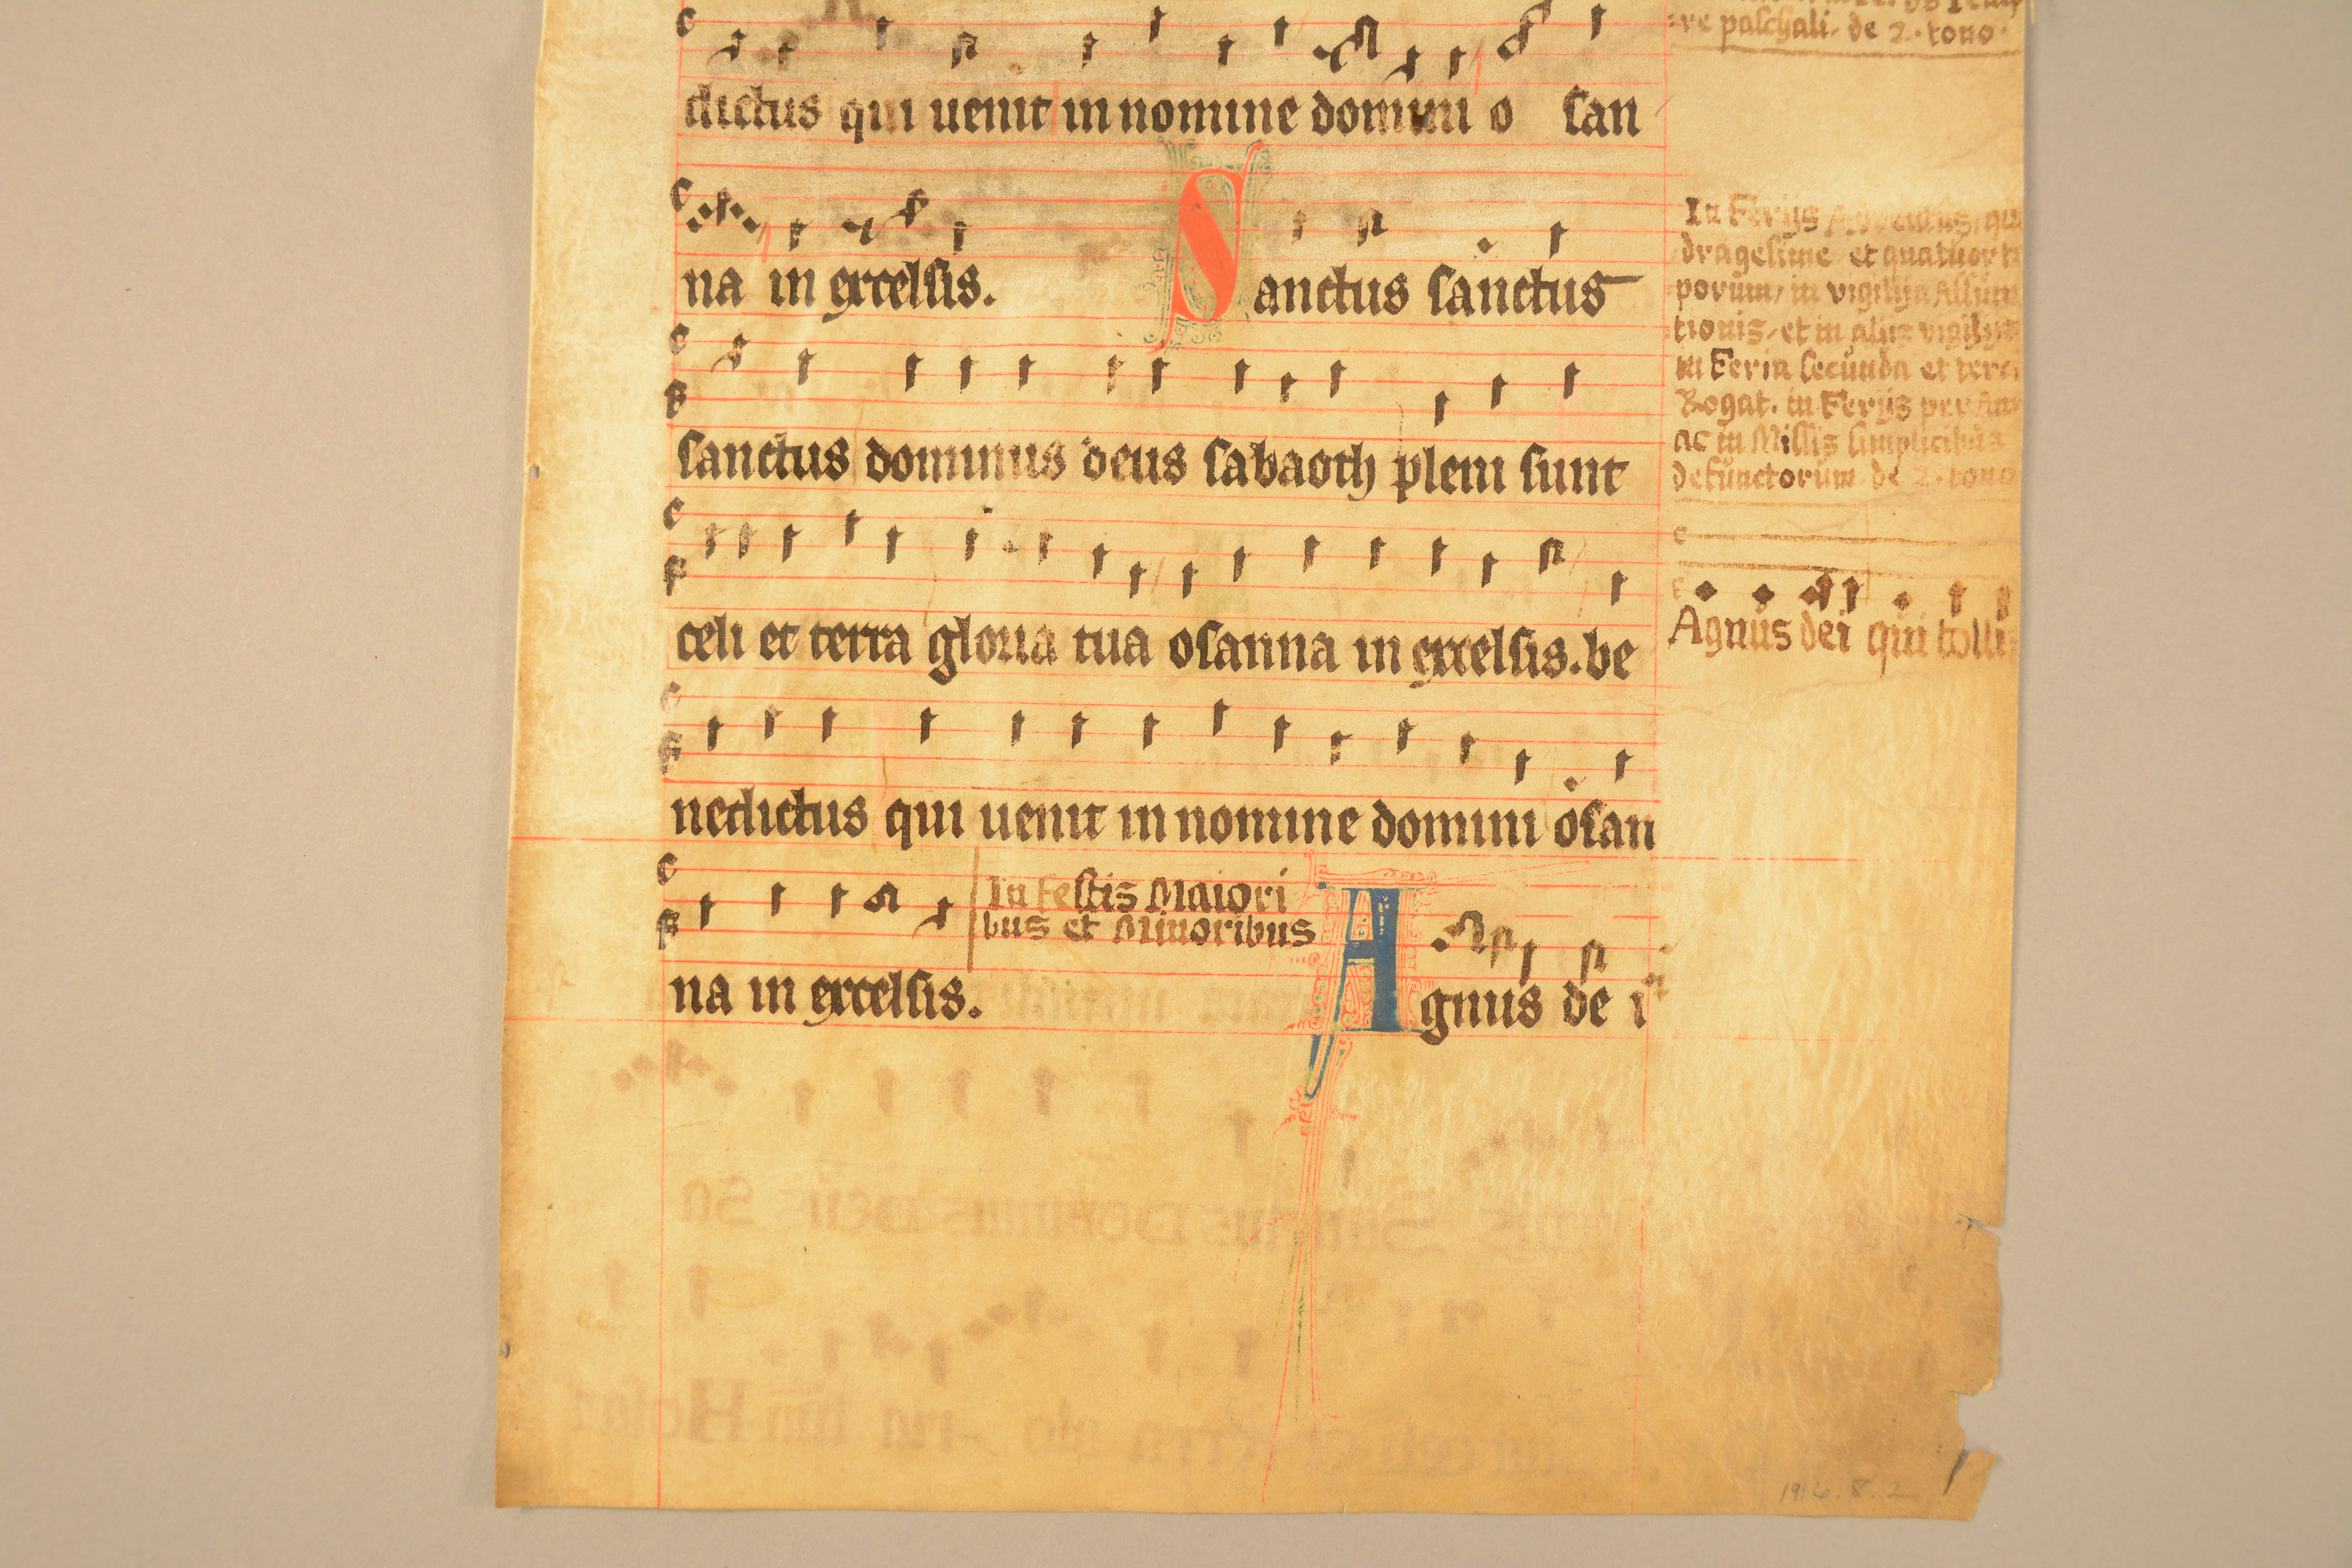 dictus qui uenit in nomine domini o ſan
na in excelſis. Sanctus ſanctus
ſanctus dominus deus ſabaoth pleni ſunt
celi et terra gloria tua oſanna in excelſis. be
nedictus qui uenit in nomine domini oſan
na in excelſis. In Feſtis Maiori
bus et Minoribus
Agnus de i
re paſchali. de 2. tono.
In Ferijs Aduentus, qu
drageſime et quatuor t
porum, in vigilija Aſſum
tionis, et in alijs vigilijs
in Feria ſecunda et terci
Rogat. in Ferijs per Ann
ac in Miſſis ſimplicibus
defunctorum de 2. tono
Agnus dei qui tolli
1916.8.2